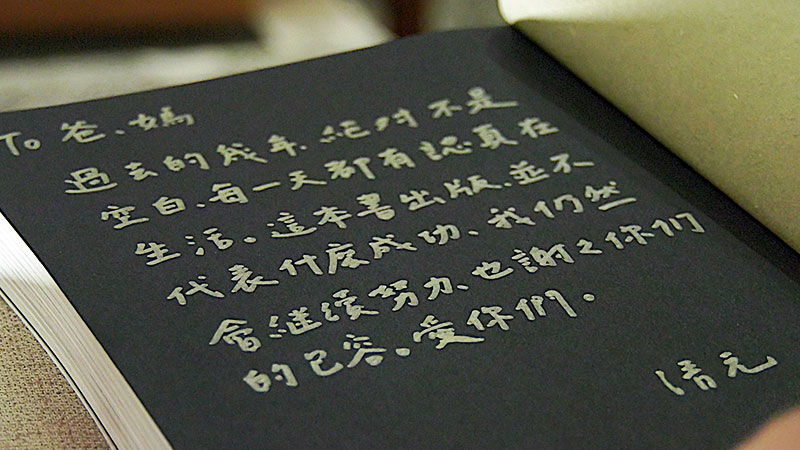 To 爸、媽
過去的幾年、絕对不是
空白、每一天都有認真在
生活。這本書出版、並不
代表什麼成功、我們然
會継续努力、也謝々你们
的包容。愛你們。
清元